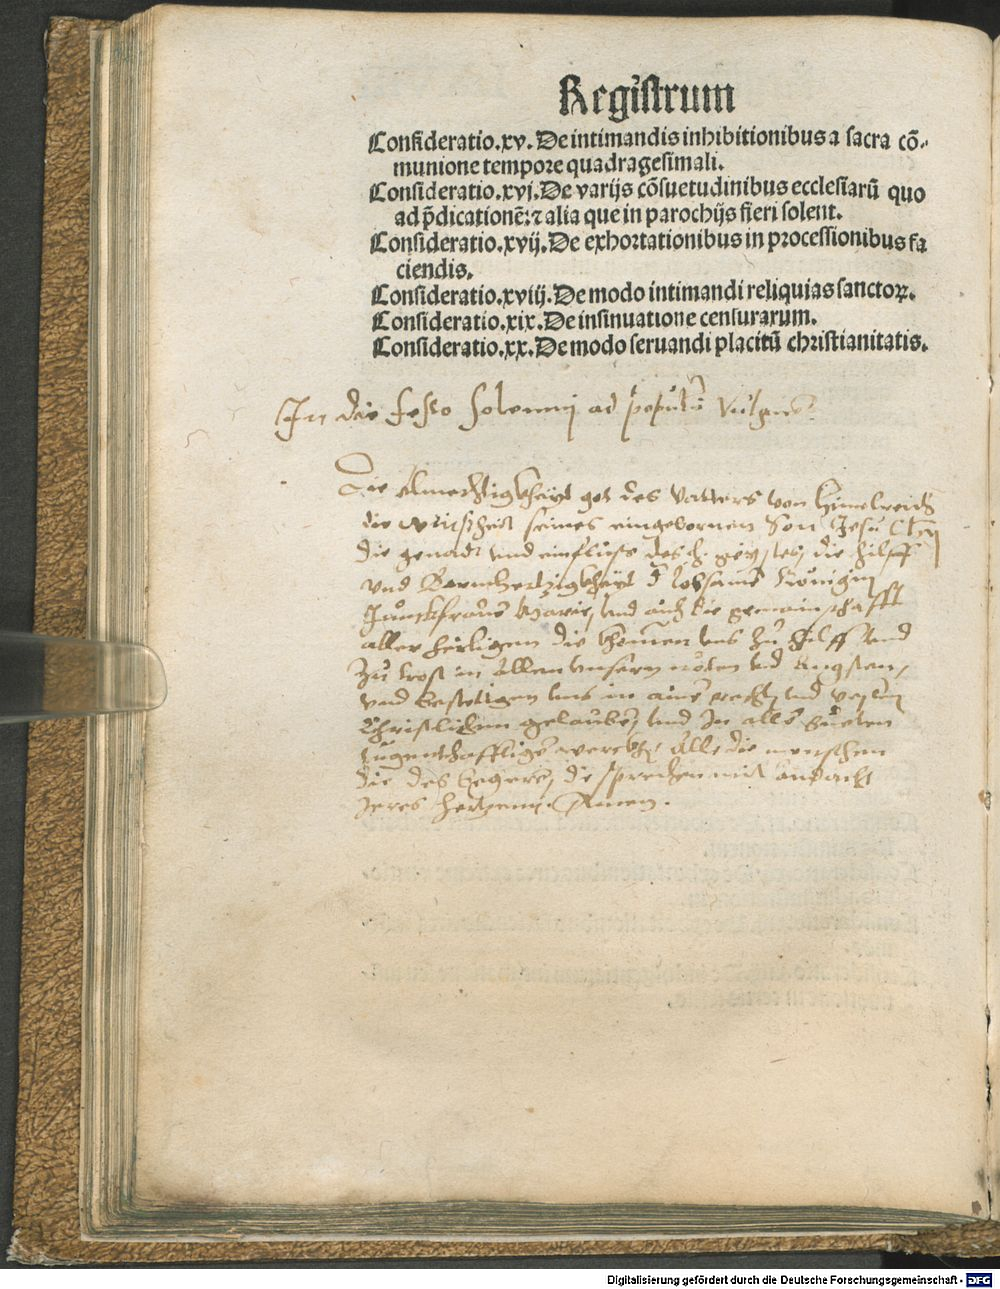 Registrum
Consideratio.xv. De intimandis inhibitionibus a sacra cõ-
munione tempore quadragesimali.
Consideratio.xvj. De varijs cõsuetudinibus ecclesiarũ quo
ad p̃dicationẽ: ⁊ alia que in parochijs fieri solent.
Consideratio.xvij. De exhortationibus in processionibus fa
ciendis.
Consideratio.xviij. De modo intimandi reliquias sanctoꝝ.
Consideratio.xix. De insinuatione censurarum.
Consideratio.xx. De modo seruandi placitũ christianitatis.
In die festo solemnj ad populũ
Die Almechtigkhayt got des Vatters von himelreich
die weisheit seines eingebornen Son Jesu Chrj
die genadt vnd einfluss des h. geystes, die hilff
vnd Barmhertzigkhayt d lobsamẽ Künigin
Junckfrawẽ Marie, vnd auch die gemainschafft
aller heiligen die khomen vns zu hilff vnd
zu trost in allen vnsern nöten vnd Angsten,
vnd bestettigen vns in ainẽ rechtẽ vnd
Christlichen gelauben, vnd In allẽ gueten
tugenthafftigẽ werckhẽ Alle die menschen
die des begerẽ, die sprechen mit andacht
Jeres hertzenn. Amen.
Digitalisierung gefördert durch die Deutsche Forschungsgemeinschaft - DFG